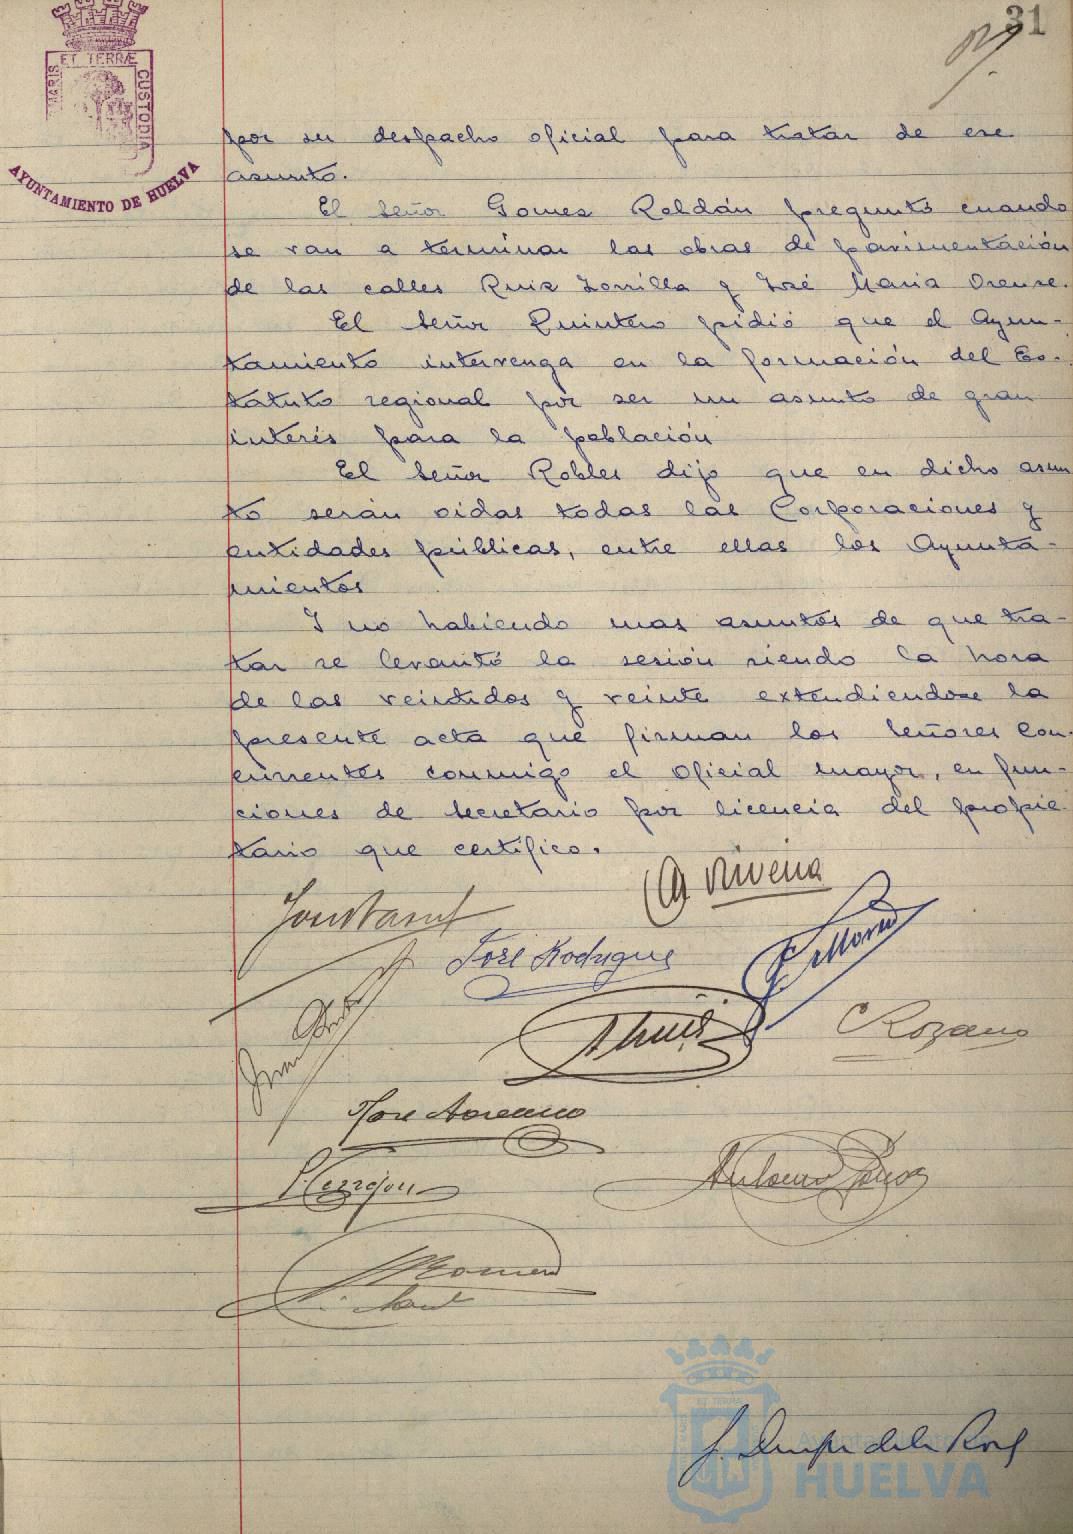 31
ET TERRÆ
MARIS
CUSTODIA
AYUNTAMIENTO DE HUELVA
por su despacho oficial para tratar de ese
asunto.
El Señor Gomez Roldán preguntó cuando
se van a terminar las obras de pavimentación
de las calles Ruiz Zorrilla y José Maria Orense.
El Señor Quintero pidió que el Ayun-
tamiento intervenga en la formación del Es-
tatuto regional por ser un asunto de gran
interés para la población
El Señor Robles dijo que en dicho asun
to serán oidas todas las Corporaciones y
entidades públicas, entre ellas los Ayunta-
mientos
Y no habiendo mas asuntos de que tra-
tar se levantó la sesión siendo la hora
de las veintidos y veinte extendiendose la
presente acta que firman los Señores con-
currentes conmigo el oficial mayor, en fun-
ciones de secretario por licencia del propie-
tario que certifico.
Rivera
José Rodrigue
Morno
A Ruiz
C Rozano
José Moreno
Terrejon
Antonio
Romero
de la Rosa
Ayuntamiento de
HUELVA